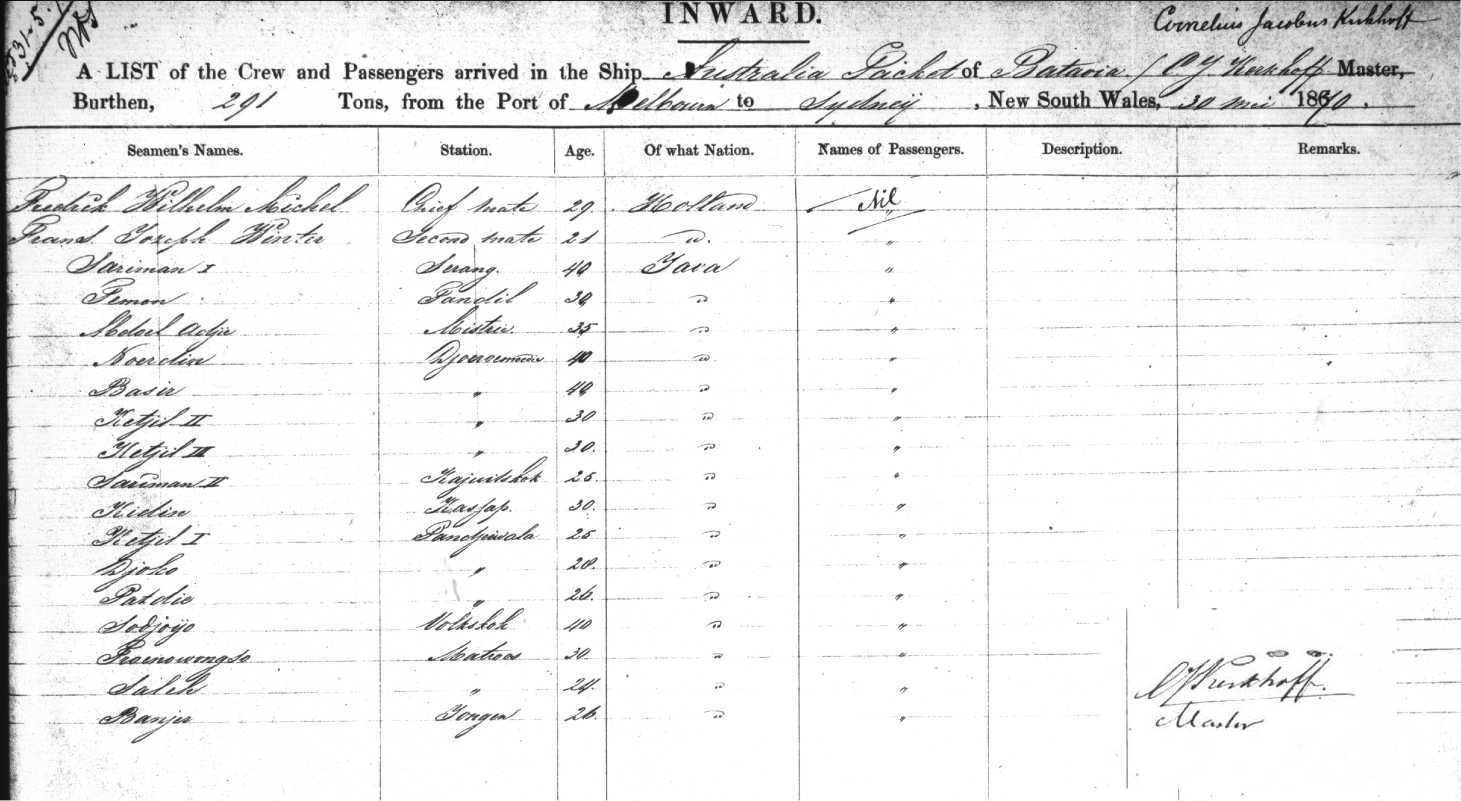 INWARD.
Cornelius Jacobus Kirkhoff
A LIST of the Crew and Passengers arrived in the Ship Australia Packet of Batavia / C J. Kerkhoff Master,
Burthen, 291 Tons, from the Port of to Sydneÿ, New South Wales, 30 mei 1860.
Seamen's Names. Station. Age. Of what Nation. Names of Passengers. Description. Remarks.
Fredrik Wilhelm Michel Chief mate 29. Holland Nil
Frans. Jozeph Winter Second mate 21 " "
Sariman I Serang. 40 Java "
Pemon Tandil 30 " "
Abdoel Adjie Mistrie 35 " "
Noerdin 40 " "
Basir " 40 " "
Ketjil II " 30 " "
Ketjil III " 30. " "
Sariman II Kajuitskok 25. " "
Kidin Kassap. 30. " "
Ketjil I 25 " "
Djoko " 28. " "
Patdie " 26. " "
Sodjoÿo Volkskok 40 " "
Matroos 30. " "
Saleh " 24. " "
Banjer Jongen 26. " "
CJKerkhoff.
Master